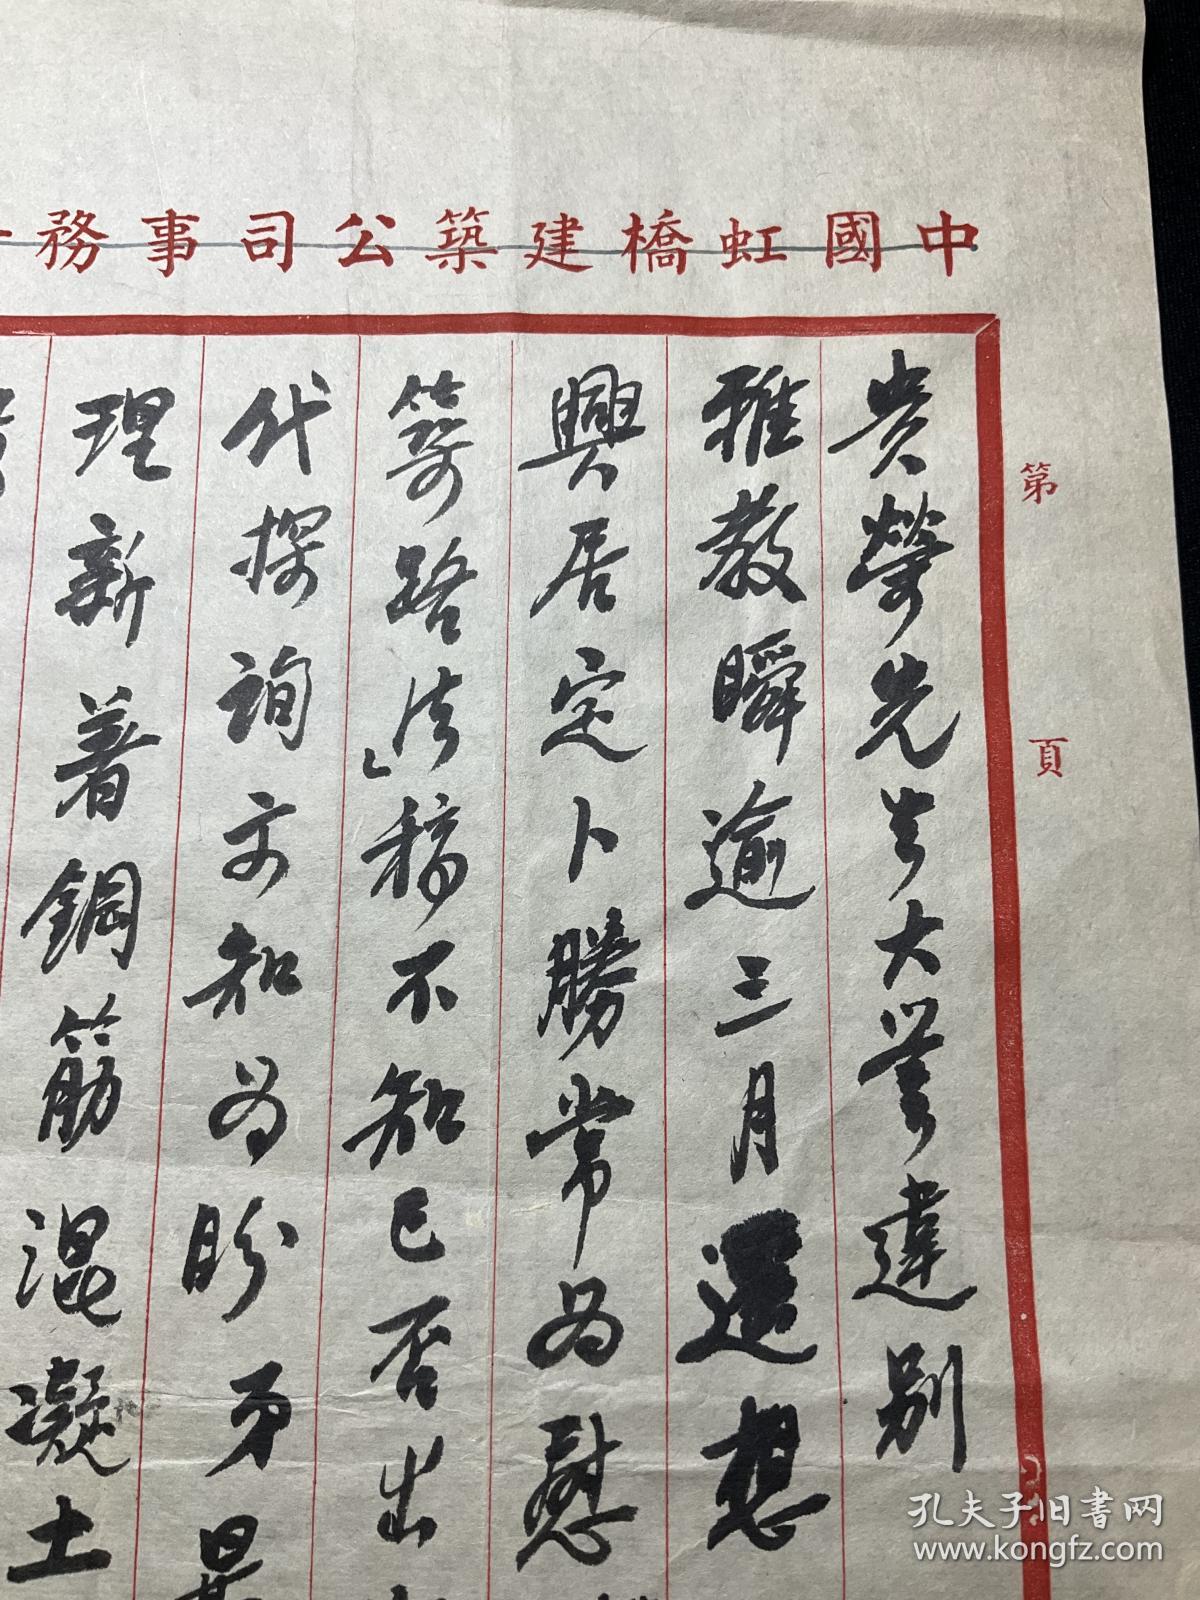 中國虹橋建築公司事務
第 頁
貴榮先生大鑒違別
雅教瞬逾三月遥想
興居定卜勝常为慰
築路法」稿不知已否出
代探詢示知为盼弟最
理新著鋼筋混凝土
孔夫子旧书网
www.kongfz.com